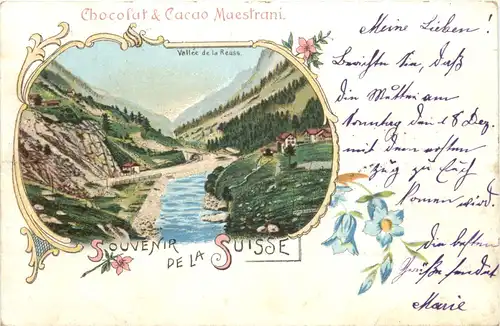 Chocolat & Cacao Maestrani.
Vallée de la Reuss
SOUVENIR
DE LA SUISSE
Meine Lieben!
Berichte Sie, daß
die Mutter am
Sonntag den 18 Dez.
mit dem ersten
Zug zu Euch
komen wird.
Die besten
Grüße sendet
Marie